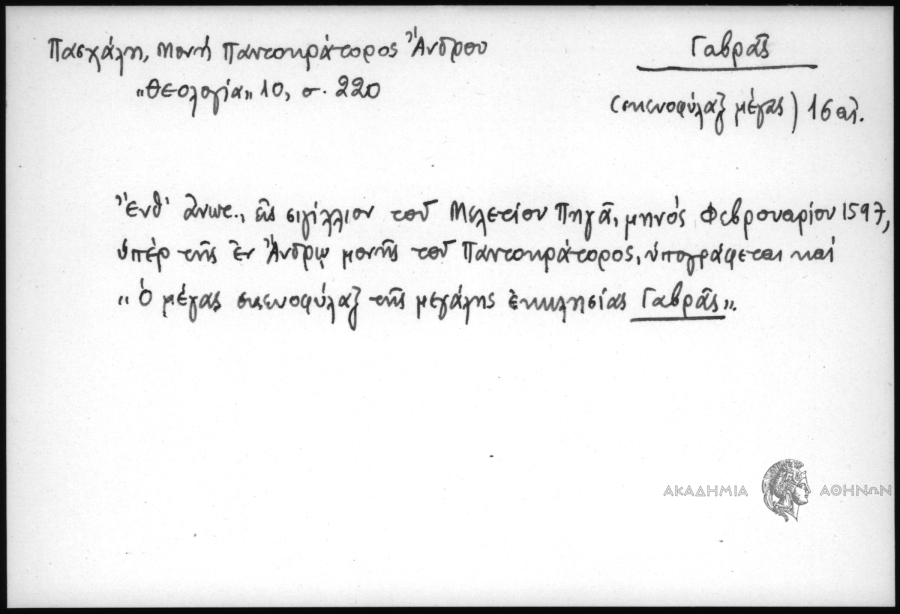 Πασχάλη, Μονή Παντοκράτορος Ἄνδρου
Γαβρᾶς
„Θεολογία„ 10, σ. 220
(σκευοφύλαξ μέγας) 16 αἰ.
Ἔνθ' ἀνωτ., εἰς σιγίλλιον τοῦ Μελετίου Πηγᾶ, μηνός Φεβρουαρίου 1597,
ὑπέρ τῆς ἐν Ἄνδρῳ μονῆς τοῦ Παντοκράτορος, ὑπογράφεται καί
„ Ὁ μέγας σκευοφύλαξ τῆς μεγάλης ἐκκλησίας Γαβρᾶς„.
ΑΚΑΔΗΜΙΑ ΑΘΗΝΩΝ